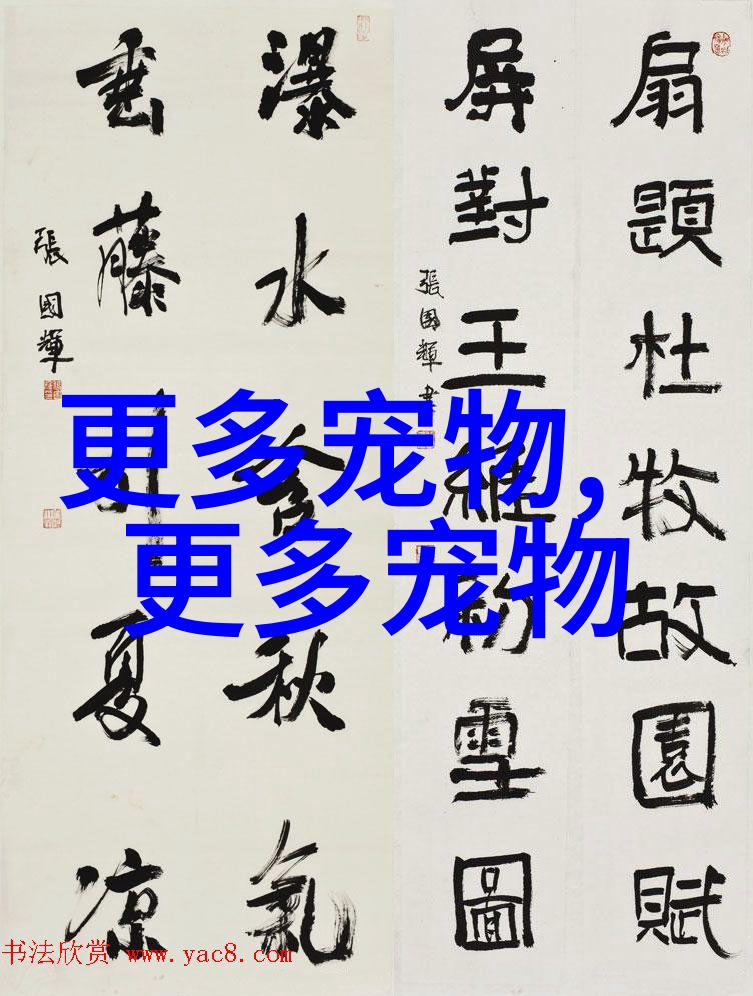 扇題杜牧故園賦
屏對王維初雪圖
張國輝書
瀑水含秋氣
垂藤引夏凉
張國輝
更多宠物,
更多宠物
书法欣赏 www.yac8.com